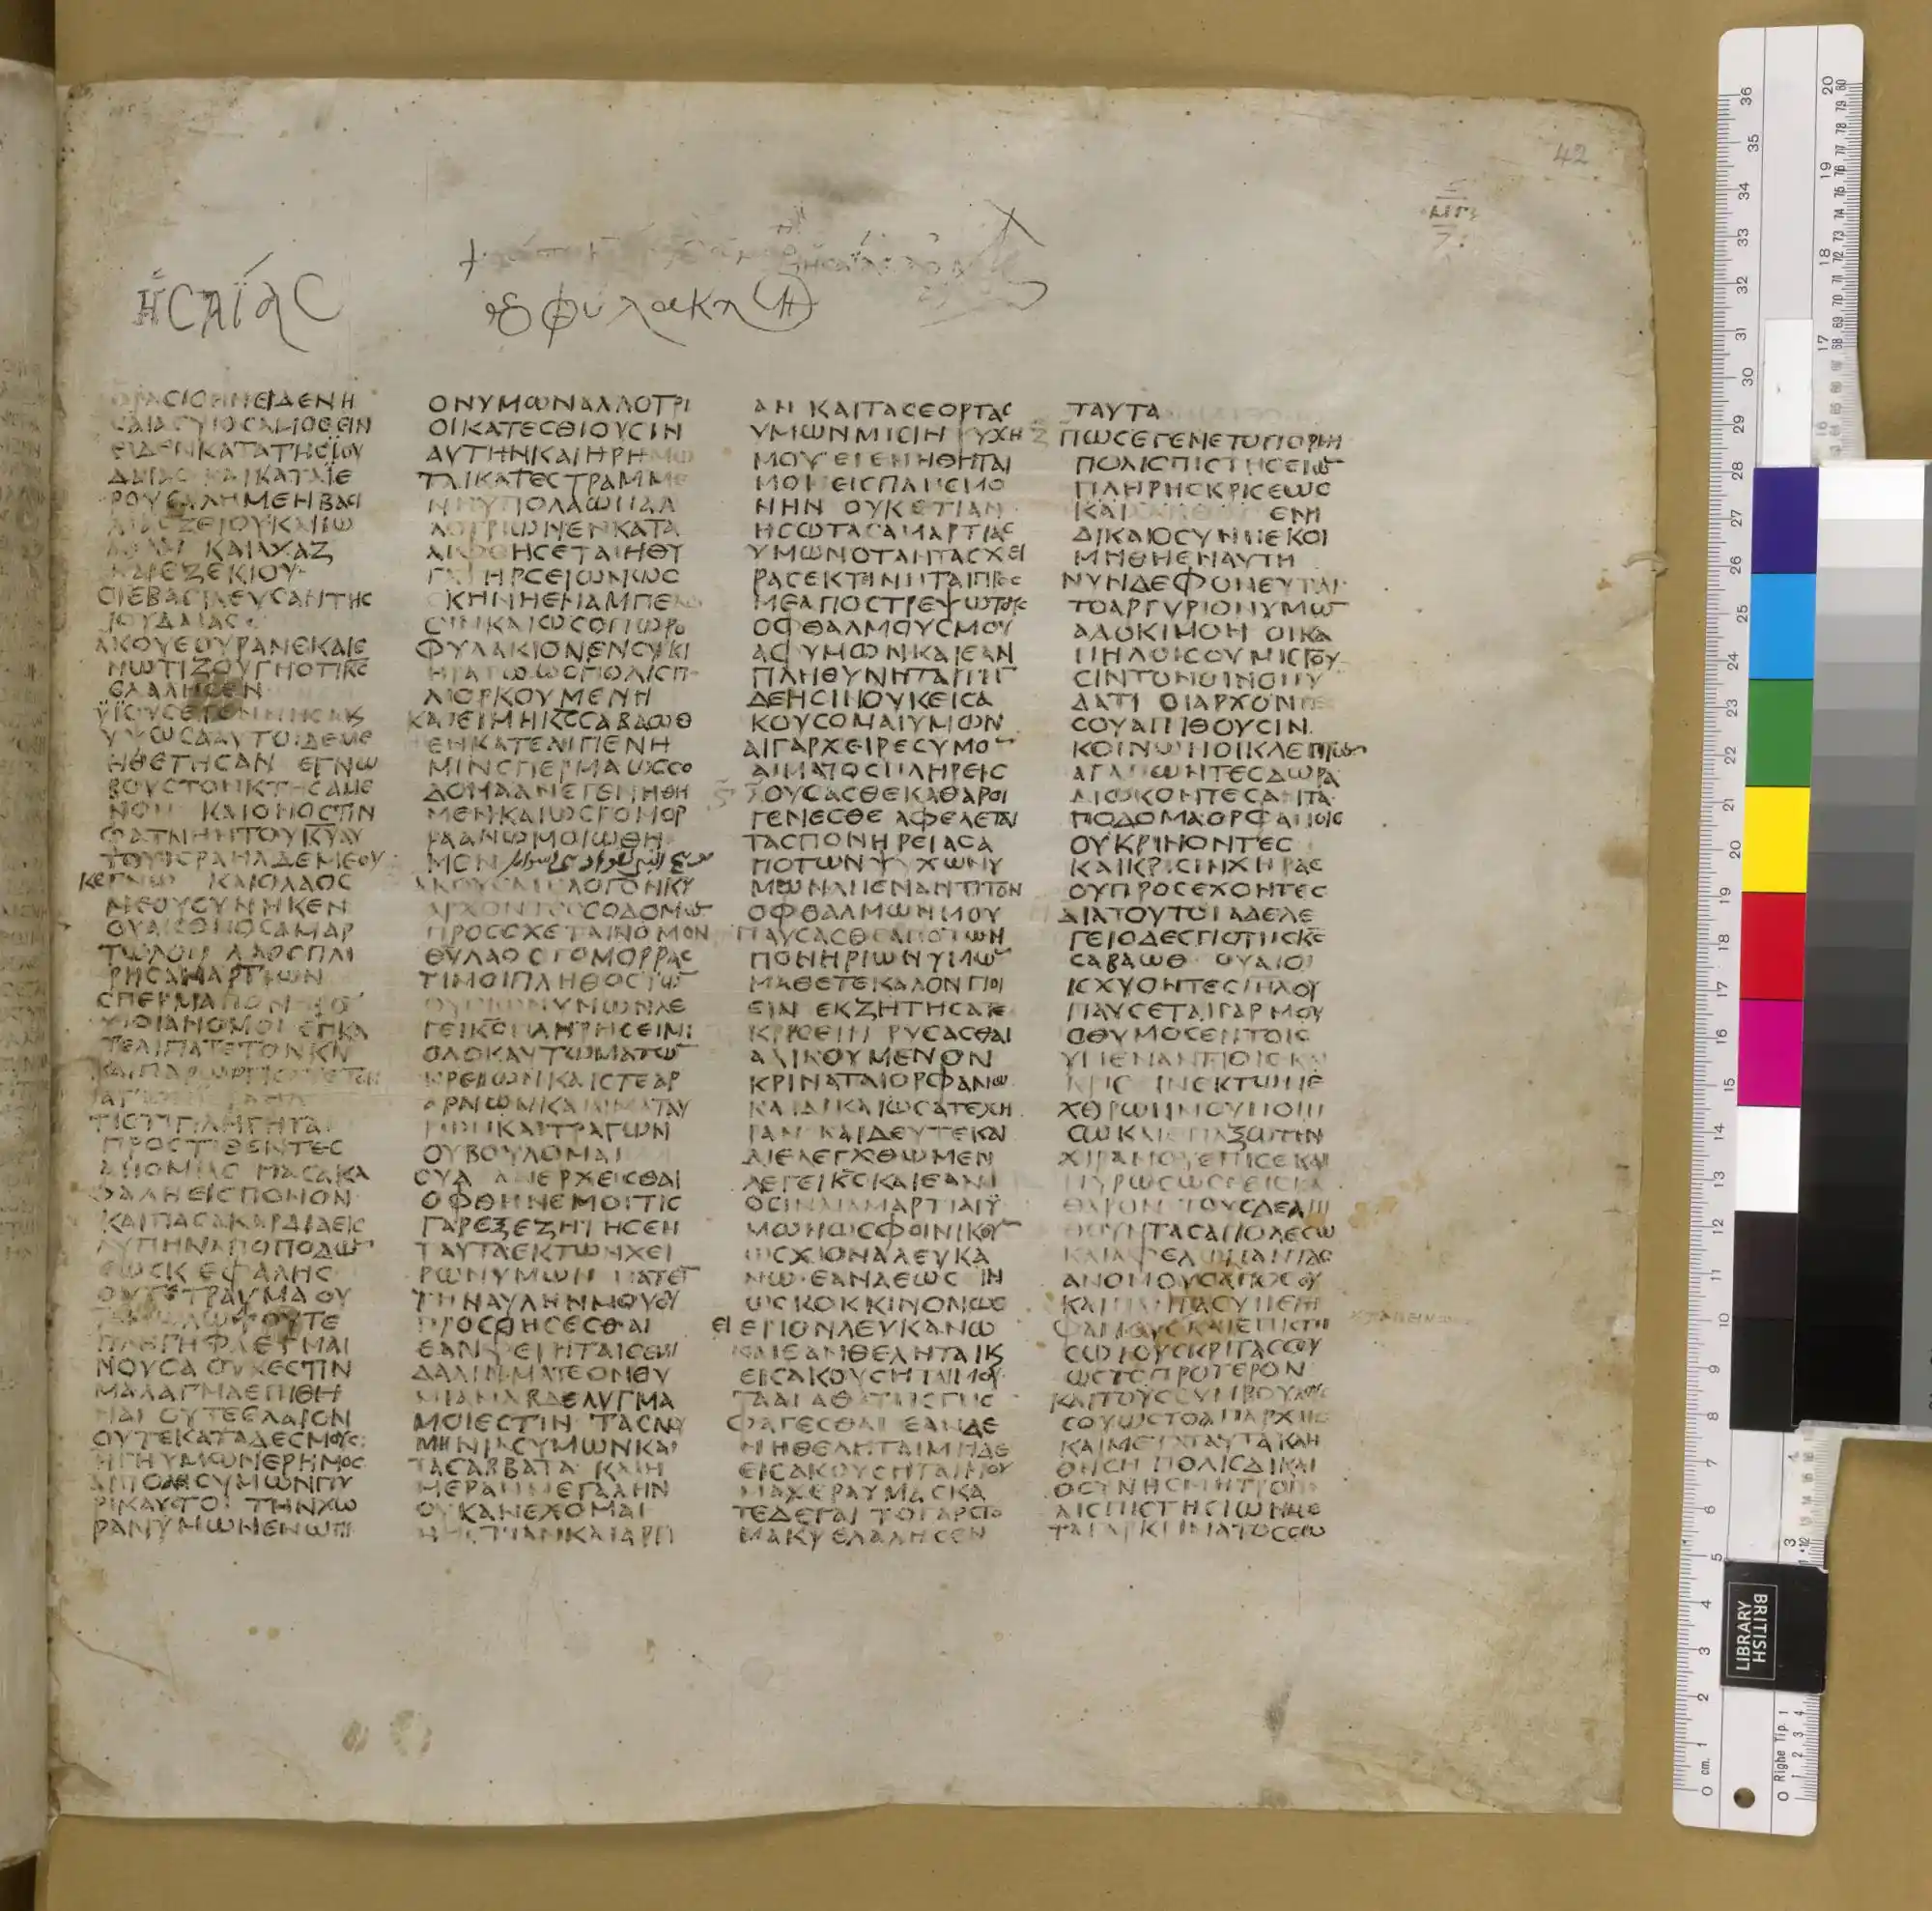 42
ΗϹΑΪΑϹ
ΟΡΑϹΙϹ ΗΝ ΕΙΔΕΝ Η
ϹΑΪΑϹ ΥΙΟϹ ΑΜΩϹ ΗΝ
ΕΙΔΕΝ ΚΑΤΑ ΤΗϹ ΙΟΥ
ΔΑΙΑϹ ΚΑΙ ΚΑΤΑ ΪΕ
ΡΟΥϹΑΛΗΜ ΕΝ ΒΑϹΙ
ΛΙΑϹ ΖΕΙΟΥ ΚΑΙ ΙΩ
ΑΘΑΜ ΚΑΙ ΑΧΑΖ
ΚΑΙ ΕΖΕΚΙΟΥ
ΟΙ ΕΒΑϹΙΛΕΥϹΑΝ ΤΗϹ
ΙΟΥΔΑΙΑϹ
ΑΚΟΥΕ ΟΥΡΑΝΕ ΚΑΙ Ε
ΝΩΤΙΖΟΥ ΓΗ ΟΤΙ ΚϹ
ΕΛΑΛΗϹΕΝ
ΫΪΟΥϹ ΕΓΕΝΝΗϹΑ Κ
ΥΨΩϹΑ ΑΥΤΟΙ ΔΕ ΜΕ
ΗΘΕΤΗϹΑΝ ΕΓΝΩ
ΒΟΥϹ ΤΟΝ ΚΤΗϹΑΜΕ
ΝΟΝ ΚΑΙ ΟΝΟϹ ΤΗΝ
ΦΑΤΝΗΝ ΤΟΥ ΚΥ ΑΥ
ΤΟΥ ΙϹΡΑΗΛ ΔΕ ΜΕ ΟΥ
Κ ΕΓΝΩ ΚΑΙ Ο ΛΑΟϹ
ΜΕ ΟΥ ϹΥΝΗΚΕΝ
ΟΥΑΙ ΕΘΝΟϹ ΑΜΑΡ
ΤΩΛΟΝ ΛΑΟϹ ΠΛΗ
ΡΗϹ ΑΜΑΡΤΙΩΝ
ϹΠΕΡΜΑ ΠΟΝΗΡΟ
ΥΙΟΙ ΑΝΟΜΟΙ ΕΓΚΑ
ΤΕΛΙΠΑΤΕ ΤΟΝ ΚΝ
ΚΑΙ ΠΑΡΩΡΓΙϹΑΤΕ ΤΟΝ
ΤΙ ΕΤΙ ΠΛΗΓΗΤΑΙ
ΠΡΟϹΤΙΘΕΝΤΕϹ
ΑΝΟΜΙΑϹ ΠΑϹΑ ΚΑ
ΦΑΛΗ ΕΙϹ ΠΟΝΟΝ
ΚΑΙ ΠΑϹΑ ΚΑΡΔΙΑ ΕΙϹ
ΛΥΠΗΝ ΑΠΟ ΠΟΔΩ
ΕΩϹ ΚΕΦΑΛΗϹ
ΟΥΤΕ ΤΡΑΥΜΑ ΟΥ
ΤΕ ΜΩΛΩΨ ΟΥΤΕ
ΠΛΗΓΗ ΦΛΕΓΜΑΙ
ΝΟΥϹΑ ΟΥΚ ΕϹΤΙΝ
ΜΑΛΑΓΜΑ ΕΠΙΘΗ
ΝΑΙ ΟΥΤΕ ΕΛΑΙΟΝ
ΟΥΤΕ ΚΑΤΑΔΕϹΜΟΥϹ
Η ΓΗ ΥΜΩΝ ΕΡΗΜΟϹ
ΑΙ ΠΟΛΙϹ ΥΜΩΝ ΠΥ
ΡΙΚΑΥϹΤΟΙ ΤΗΝ ΧΩ
ΡΑΝ ΥΜΩΝ ΕΝΩΠΙ
ΟΝ ΥΜΩΝ ΑΛΛΟΤΡΙ
ΟΙ ΚΑΤΕϹΘΙΟΥϹΙΝ
ΑΥΤΗΝ ΚΑΙ ΗΡΗΜΩ
ΤΑΙ ΚΑΤΕϹΤΡΑΜΜΕ
ΝΗ ΥΠΟ ΛΑΩΝ ΑΛ
ΛΟΤΡΙΩΝ ΕΝΚΑΤΑ
ΛΙΦΘΗϹΕΤΑΙ Η ΘΥ
ΓΑΤΗΡ ϹΕΙΩΝ ΩϹ
ϹΚΗΝΗ ΕΝ ΑΜΠΕΛΩ
ΟΙΝ ΚΑΙ ΩϹ ΟΠΩΡΟ
ΦΥΛΑΚΙΟΝ ΕΝ ϹΥΚΙ
ΗΡΑΤΩ ΩϹ ΠΟΛΙϹ Π
ΛΙΟΡΚΟΥΜΕΝΗ
ΚΑΙ ΕΙ ΜΗ ΚϹ ϹΑΒΑΩΘ
ΕΝΚΑΤΕΛΙΠΕΝ Η
ΜΙΝ ϹΠΕΡΜΑ ΩϹ ϹΟ
ΔΟΜΑ ΑΝ ΕΓΕΝΗΘΗ
ΜΕΝ ΚΑΙ ΩϹ ΓΟΜΟΡ
ΡΑ ΑΝ ΩΜΟΙΩΘΗ
ΜΕΝ
ΑΚΟΥϹΑΤΕ ΛΟΓΟΝ ΚΥ
ΑΡΧΟΝΤΕϹ ϹΟΔΟΜΩ
ΠΡΟϹΕΧΕΤΑΙ ΝΟΜΟΝ
ΘΥ ΛΑΟϹ ΓΟΜΟΡΡΑϹ
ΤΙ ΜΟΙ ΠΛΗΘΟϹ ΤΩ
ΘΥϹΙΩΝ ΥΜΩΝ ΛΕ
ΓΕΙ ΚϹ ΠΛΗΡΗϹ ΕΙΜΙ
ΟΛΟΚΑΥΤΩΜΑΤΩ
ΚΡΕΙΩΝ ΚΑΙ ϹΤΕΑΡ
ΑΡΝΩΝ ΚΑΙ ΑΙΜΑ ΤΑΥ
ΡΩΝ ΚΑΙ ΤΡΑΓΩΝ
ΟΥ ΒΟΥΛΟΜΑΙ
ΟΥΔ ΑΝ ΕΡΧΕΙϹΘΑΙ
ΟΦΘΗΝΕ ΜΟΙ ΤΙϹ
ΓΑΡ ΕΞΕΖΗΤΗϹΕΝ
ΤΑΥΤΑ ΕΚ ΤΩΝ ΧΕΙ
ΡΩΝ ΥΜΩΝ ΠΑΤΕΙ
ΤΗΝ ΑΥΛΗΝ ΜΟΥ ΟΥ
ΠΡΟϹΘΗϹΕϹΘΑΙ
ΕΑΝ ΦΕΡΗΤΑΙ ϹΕΜΙ
ΔΑΛΙΝ ΜΑΤΕΟΝ ΘΥ
ΜΙΑΜΑ ΒΔΕΛΥΓΜΑ
ΜΟΙ ΕϹΤΙΝ ΤΑϹ ΝΟΥ
ΜΗΝΙΑϹ ΥΜΩΝ ΚΑΙ
ΤΑ ϹΑΒΒΑΤΑ ΚΑΙ Η
ΜΕΡΑΝ ΜΕΓΑΛΗΝ
ΟΥΚ ΑΝΕΧΟΜΑΙ
ΝΗϹΤΙΑΝ ΚΑΙ ΑΡΓΙ
ΑΝ ΚΑΙ ΤΑϹ ΕΟΡΤΑϹ
ΥΜΩΝ ΜΙϹΙ Η ΨΥΧΗ
ΜΟΥ ΕΓΕΝΗΘΗΤΑΙ
ΜΟΙ ΕΙϹ ΠΛΗϹΜΟ
ΝΗΝ ΟΥΚΕΤΙ ΑΝ
ΗϹΩ ΤΑϹ ΑΜΑΡΤΙΑϹ
ΥΜΩΝ ΟΤΑΝ ΤΑϹ ΧΕΙ
ΡΑϹ ΕΚΤΙΝΗΤΑΙ ΠΡΟϹ
ΜΕ ΑΠΟϹΤΡΕΨΩ ΤΟΥϹ
ΟΦΘΑΛΜΟΥϹ ΜΟΥ
ΑΦ ΥΜΩΝ ΚΑΙ ΕΑΝ
ΠΛΗΘΥΝΗΤΑΙ ΤΗΝ
ΔΕΗϹΙΝ ΟΥΚ ΕΙϹΑ
ΚΟΥϹΟΜΑΙ ΥΜΩΝ
ΑΙ ΓΑΡ ΧΕΙΡΕϹ ΥΜΩ
ΑΙΜΑΤΟϹ ΠΛΗΡΕΙϹ
ΛΟΥϹΑϹΘΕ ΚΑΘΑΡΟΙ
ΓΕΝΕϹΘΕ ΑΦΕΛΕΤΑΙ
ΤΑϹ ΠΟΝΗΡΕΙΑϹ Α
ΠΟ ΤΩΝ ΨΥΧΩΝ Υ
ΜΩΝ ΑΠΕΝΑΝΤΙ ΤΩΝ
ΟΦΘΑΛΜΩΝ ΜΟΥ
ΠΑΥϹΑϹΘΕ ΑΠΟ ΤΩΝ
ΠΟΝΗΡΙΩΝ ΥΜΩ
ΜΑΘΕΤΕ ΚΑΛΟΝ ΠΟΙ
ΕΙΝ ΕΚΖΗΤΗϹΑΤΕ
ΚΡΙϹΕΙΝ ΡΥϹΑϹΘΑΙ
ΑΔΙΚΟΥΜΕΝΟΝ
ΚΡΙΝΑΤΑΙ ΟΡΦΑΝΩ
ΚΑΙ ΔΙΚΑΙΩϹΑΤΕ ΧΗ
ΡΑΝ ΚΑΙ ΔΕΥΤΕ ΚΑΙ
ΔΙΕΛΕΓΧΘΩΜΕΝ
ΛΕΓΕΙ ΚϹ ΚΑΙ ΕΑΝ
ΩϹΙΝ ΑΙ ΑΜΑΡΤΙΑΙ Ϋ
ΜΩΝ ΩϹ ΦΟΙΝΙΚΟΥ
ΩϹ ΧΙΟΝΑ ΛΕΥΚΑ
ΝΩ ΕΑΝ ΔΕ ΩϹΙΝ
ΩϹ ΚΟΚΚΙΝΟΝ ΩϹ
ΕΙ ΕΡΙΟΝ ΛΕΥΚΑΝΩ
ΚΑΙ ΕΑΝ ΘΕΛΗΤΑΙ Κ
ΕΙϹΑΚΟΥϹΗΤΑΙ ΜΟΥ
ΤΑ ΑΓΑΘΑ ΤΗϹ ΓΗϹ
ΦΑΓΕϹΘΑΙ ΕΑΝ ΔΕ
ΜΗ ΘΕΛΗΤΑΙ ΜΗΔΕ
ΕΙϹΑΚΟΥϹΗΤΑΙ ΜΟΥ
ΜΑΧΕΡΑ ΥΜΑϹ ΚΑ
ΤΕΔΕΤΑΙ ΤΟ ΓΑΡ ϹΤΟ
ΜΑ ΚΥ ΕΛΑΛΗϹΕΝ
ΤΑΥΤΑ
ΠΩϹ ΕΓΕΝΕΤΟ ΠΟΡΝΗ
ΠΟΛΙϹ ΠΙϹΤΗ ϹΕΙΩ
ΠΛΗΡΗϹ ΚΡΙϹΕΩϹ
ΚΑΙ ΕΝ Η
ΔΙΚΑΙΟϹΥΝΗ ΕΚΟΙ
ΜΗΘΗ ΕΝ ΑΥΤΗ
ΝΥΝ ΔΕ ΦΟΝΕΥΤΑΙ
ΤΟ ΑΡΓΥΡΙΟΝ ΥΜΩ
ΑΔΟΚΙΜΟΝ ΟΙ ΚΑ
ΠΗΛΟΙ ϹΟΥ ΜΙϹΓΟΥ
ϹΙΝ ΤΟΝ ΟΙΝΟΝ Υ
ΔΑΤΙ ΟΙ ΑΡΧΟΝΤΕϹ
ϹΟΥ ΑΠΙΘΟΥϹΙΝ
ΚΟΙΝΩΝΟΙ ΚΛΕΠΤΩ
ΑΓΑΠΩΝΤΕϹ ΔΩΡΑ
ΔΙΩΚΟΝΤΕϹ ΑΝΤΑ
ΠΟΔΟΜΑ ΟΡΦΑΝΟΙϹ
ΟΥ ΚΡΙΝΟΝΤΕϹ
ΚΑΙ ΚΡΙϹΙΝ ΧΗΡΑϹ
ΟΥ ΠΡΟϹΕΧΟΝΤΕϹ
ΔΙΑ ΤΟΥΤΟ ΤΑΔΕ ΛΕ
ΓΕΙ Ο ΔΕϹΠΟΤΗϹ ΚϹ
ϹΑΒΑΩΘ ΟΥΑΙ ΟΙ
ΙϹΧΥΟΝΤΕϹ ΙΗΛ ΟΥ
ΠΑΥϹΕΤΑΙ ΓΑΡ ΜΟΥ
Ο ΘΥΜΟϹ ΕΝ ΤΟΙϹ
ΥΠΕΝΑΝΤΙΟΙϹ ΚΑΙ
ΚΡΙϹΙΝ ΕΚ ΤΩΝ Ε
ΧΘΡΩΝ ΜΟΥ ΠΟΙΗ
ϹΩ ΚΑΙ ΕΠΑΞΩ ΤΗΝ
ΧΙΡΑ ΜΟΥ ΕΠΙ ϹΕ ΚΑΙ
ΠΥΡΩϹΩ ϹΕ ΕΙϹ ΚΑ
ΘΑΡΟΝ ΤΟΥϹ ΔΕ ΑΠΙ
ΘΟΥΝΤΑϹ ΑΠΟΛΕϹΩ
ΚΑΙ ΑΦΕΛΩ ΠΑΝΤΑϹ
ΑΝΟΜΟΥϹ ΑΠΟ ϹΟΥ
ΚΑΙ ΠΑΝΤΑϹ ΥΠΕΡΗ
ΦΑΝΟΥϹ ΚΑΙ ΕΠΙϹΤΗ
ϹΩ ΤΟΥϹ ΚΡΙΤΑϹ ϹΟΥ
ΩϹ ΤΟ ΠΡΟΤΕΡΟΝ
ΚΑΙ ΤΟΥϹ ϹΥΜΒΟΥΛΟΥϹ
ϹΟΥ ΩϹ ΤΟ ΑΠ ΑΡΧΗϹ
ΚΑΙ ΜΕΤΑ ΤΑΥΤΑ ΚΛΗ
ΘΗϹΗ ΠΟΛΙϹ ΔΙΚΑΙ
ΟϹΥΝΗϹ ΜΗΤΡΟΠΟ
ΛΙϹ ΠΙϹΤΗ ϹΙΩΝ ΜΕ
ΤΑ ΓΑΡ ΚΡΙΜΑΤΟϹ ϹΩ